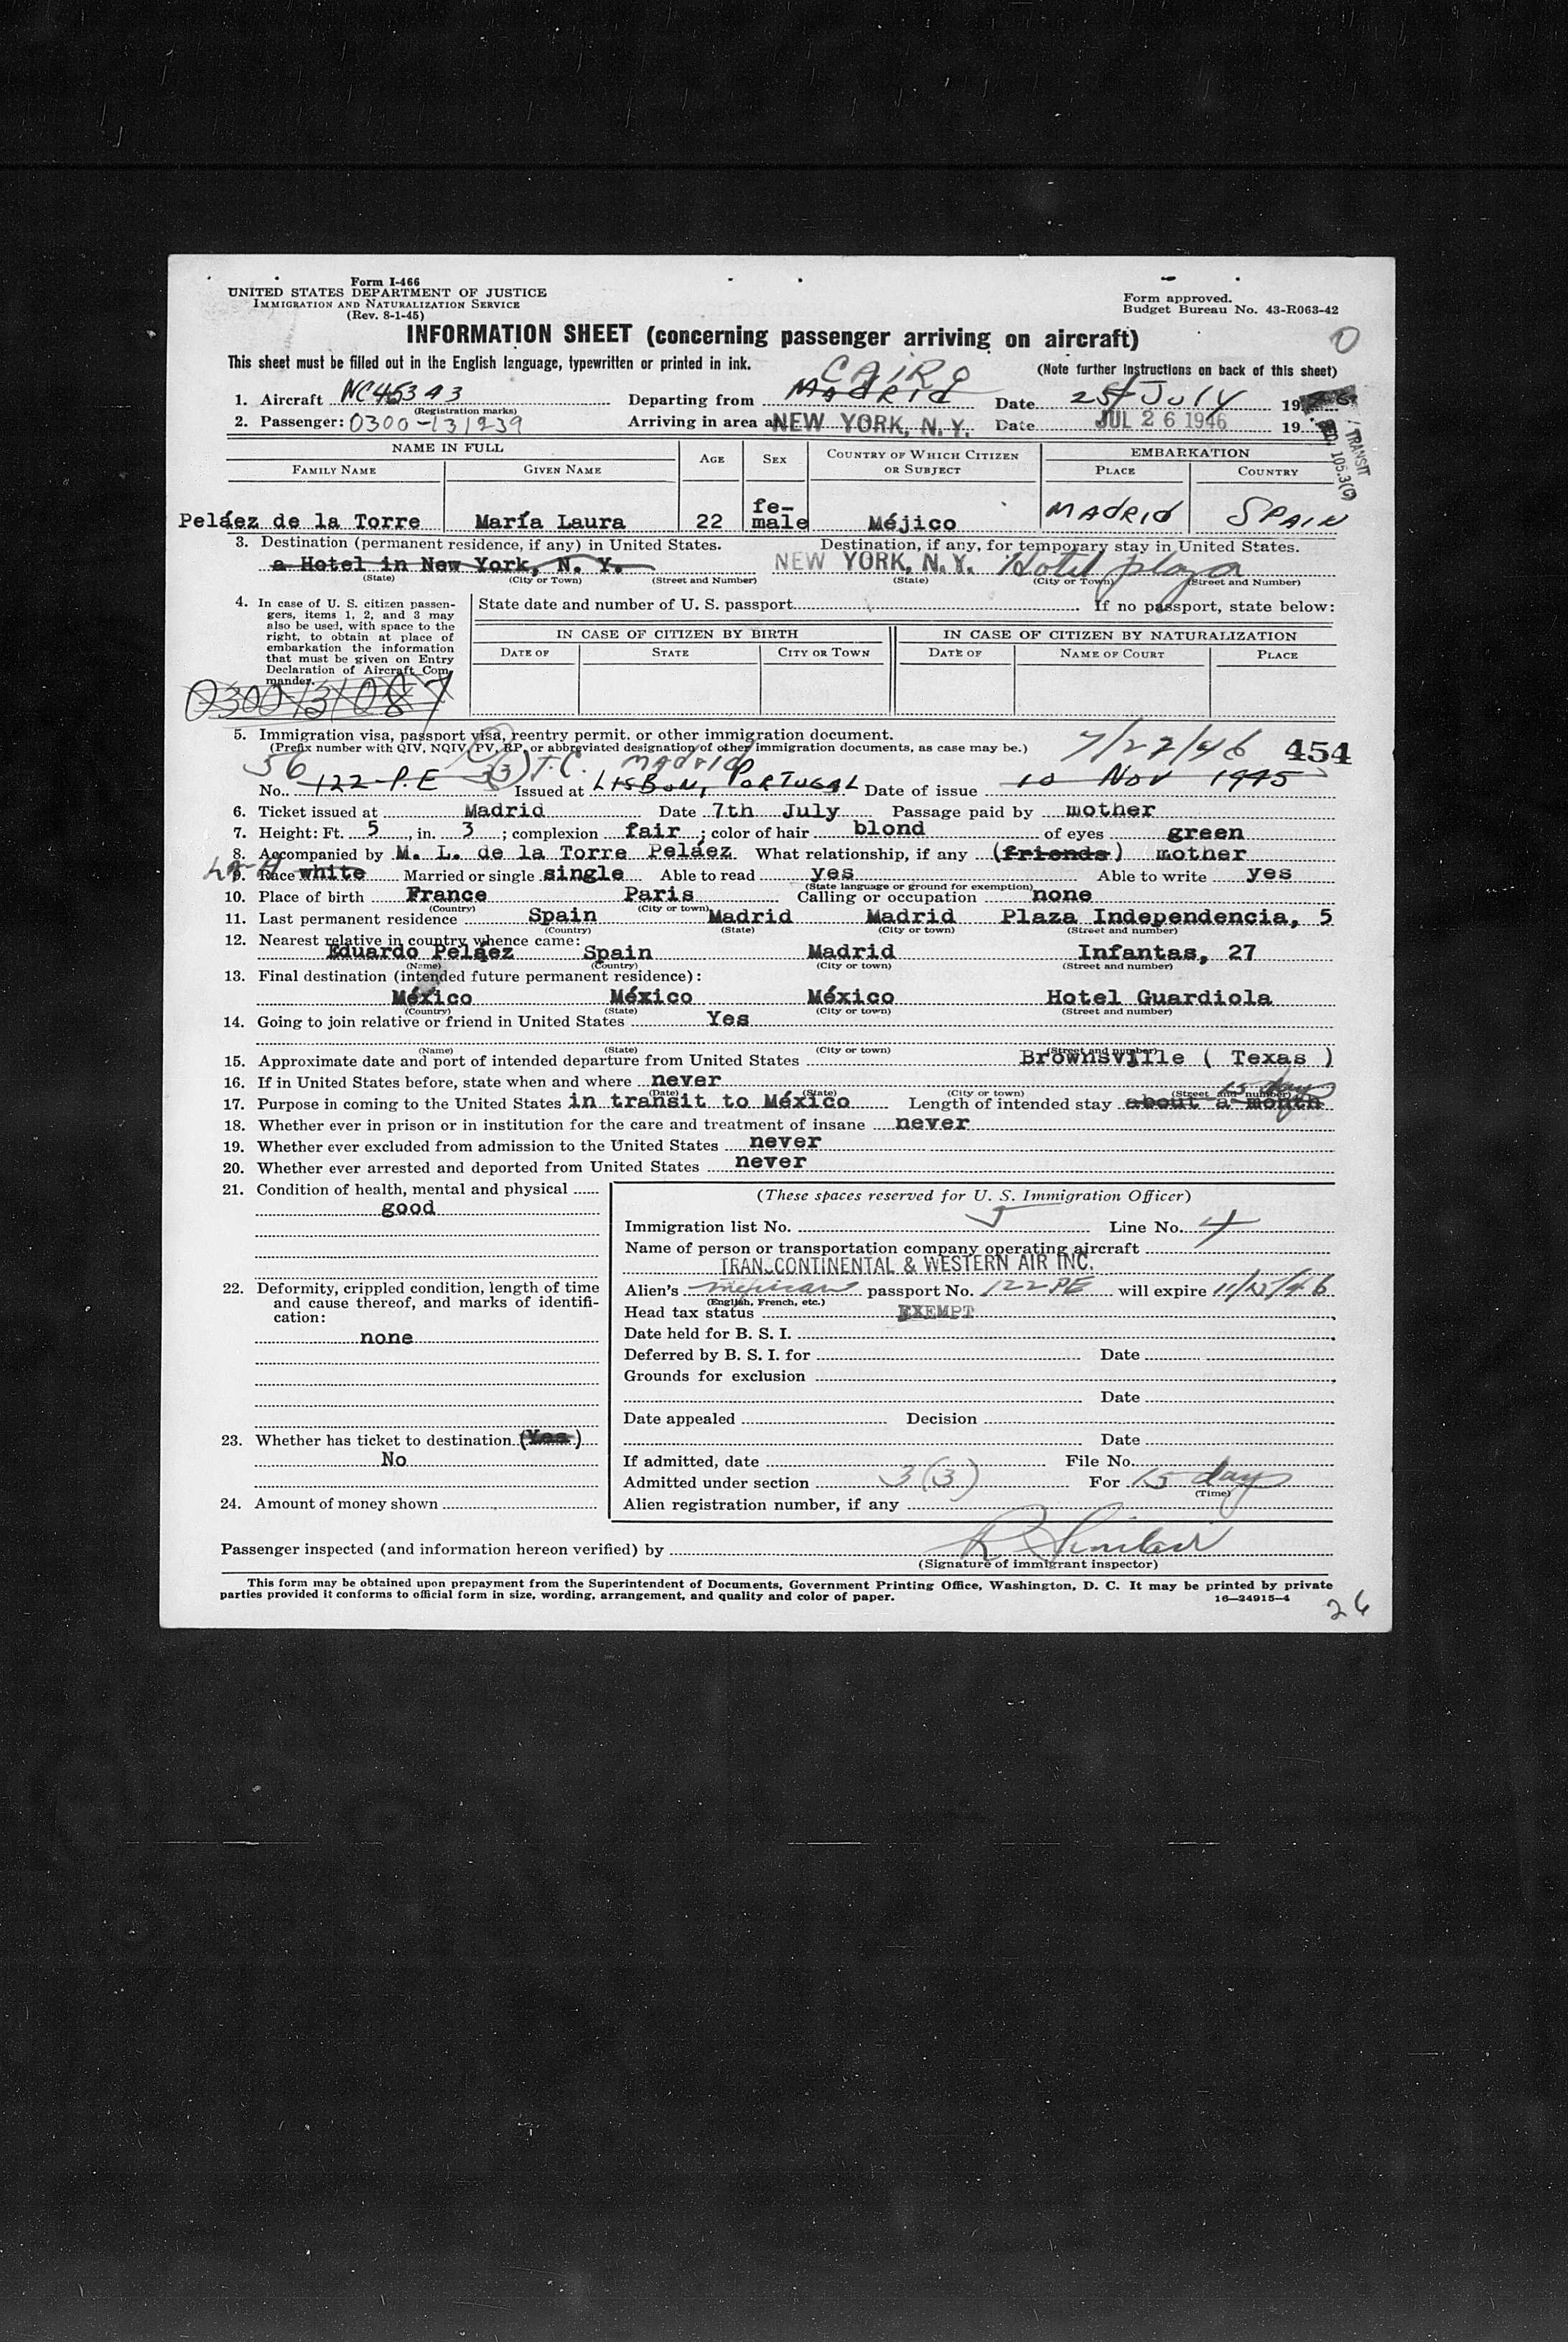 Form I-466
UNITED STATES DEPARTMENT OF JUSTICE
IMMIGRATION AND NATURALIZATION SERVICE
(Rev. 8-1-45)
Form approved.
Budget Bureau No. 43-R063-42
INFORMATION SHEET (concerning passenger arriving on aircraft)
0
This sheet must be filled out in the English language, typewritten or printed in ink.
(Note further instructions on back of this sheet)
CAIRO
1. Aircraft Departing from MADRID Date 25 July 19
(Registration marks)
2. Passenger: 0300-131239 Arriving in area a NEW YORK, N. Y. Date JUL 26 1946 19
TRANSIT
105.3(C)
NAME IN FULL AGE SEX COUNTRY OF WHICH CITIZEN OR SUBJECT EMBARKATION
FAMILY NAME GIVEN NAME PLACE COUNTRY
Peláez de la Torre María Laura 22 fe-male Méjico MADRID SPAIN
3. Destination (permanent residence, if any) in United States. Destination, if any, for temporary stay in United States.
a Hotel in New York, N. Y. NEW YORK, N. Y. Hotel plaza
(State) (City or Town) (Street and Number) (State) (City or Town) (Street and Number)
4. In case of U. S. citizen passen-
gers, items 1, 2, and 3 may
also be used, with space to the
right, to obtain at place of
embarkation the information
that must be given on Entry
Declaration of Aircraft Com-
mander.
0300-131087
State date and number of U. S. passport If no passport, state below:
IN CASE OF CITIZEN BY BIRTH IN CASE OF CITIZEN BY NATURALIZATION
DATE OF STATE CITY OR TOWN DATE OF NAME OF COURT PLACE
5. Immigration visa, passport visa, reentry permit, or other immigration document.
(Prefix number with QIV, NQIV, PV, RP, or abbreviated designation of other immigration documents, as case may be.)
7/22/46 454
56 3(3) T.C. Madrid
No. 122-P.E Issued at LISBON, PORTUGAL Date of issue 10 Nov 1945
6. Ticket issued at Madrid Date 7th July Passage paid by mother
7. Height: Ft. 5, in. 3; complexion fair; color of hair blond of eyes green
8. Accompanied by M. L. de la Torre Peláez What relationship, if any (friends) mother
9. Race white Married or single single Able to read yes Able to write yes
(State language or ground for exemption)
10. Place of birth France Paris Calling or occupation none
(Country) (City or town)
11. Last permanent residence Spain Madrid Madrid Plaza Independencia, 5
(Country) (State) (City or town) (Street and number)
12. Nearest relative in country whence came:
Eduardo Peláez Spain Madrid Infantas, 27
(Name) (Country) (City or town) (Street and number)
13. Final destination (intended future permanent residence):
México México México Hotel Guardiola
(Country) (State) (City or town) (Street and number)
14. Going to join relative or friend in United States Yes
(Name) (State) (City or town) (Street and number)
15. Approximate date and port of intended departure from United States Brownsville ( Texas )
16. If in United States before, state when and where never
(Date) (State) (City or town) (Street and number)
15 days
17. Purpose in coming to the United States in transit to México Length of intended stay about a month
18. Whether ever in prison or in institution for the care and treatment of insane never
19. Whether ever excluded from admission to the United States never
20. Whether ever arrested and deported from United States never
21. Condition of health, mental and physical
good
22. Deformity, crippled condition, length of time
and cause thereof, and marks of identifi-
cation:
none
23. Whether has ticket to destination (Yes)
No
24. Amount of money shown
(These spaces reserved for U. S. Immigration Officer)
Immigration list No. 5 Line No. 4
Name of person or transportation company operating aircraft
TRANSCONTINENTAL & WESTERN AIR INC.
Alien's mexican passport No. 122 PE will expire
(English, French, etc.)
Head tax status EXEMPT
Date held for B. S. I.
Deferred by B. S. I. for Date
Grounds for exclusion
Date
Date appealed Decision
Date
If admitted, date File No.
Admitted under section 3(3) For 15 days
(Time)
Alien registration number, if any
Passenger inspected (and information hereon verified) by R Sinclair
(Signature of immigrant inspector)
This form may be obtained upon prepayment from the Superintendent of Documents, Government Printing Office, Washington, D. C. It may be printed by private
parties provided it conforms to official form in size, wording, arrangement, and quality and color of paper.
16—24915-4
26